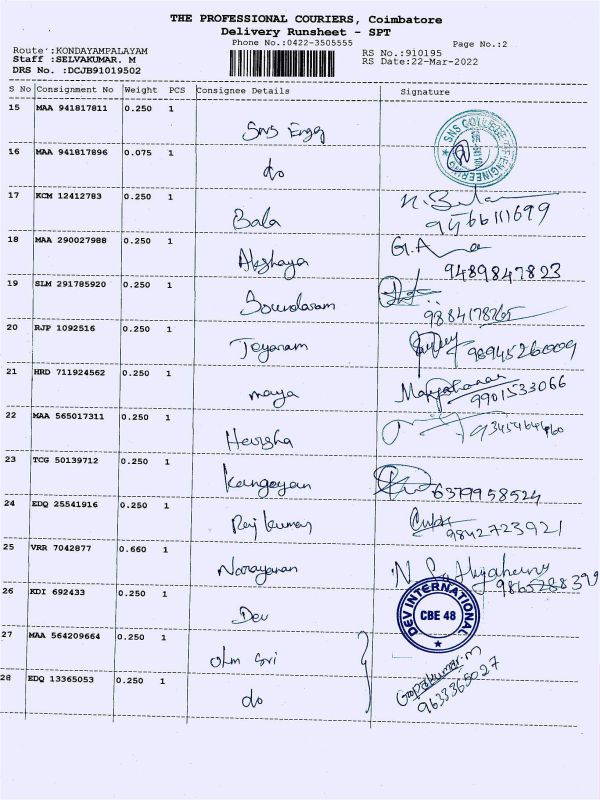 THE PROFESSIONAL COURIERS, Coimbatore
Delivery Runsheet - SPT
Phone No.:0422-3505555 Page No.:2
Route :KONDAYAMPALAYAM RS No.:910195
Staff :SELVAKUMAR. M RS Date:22-Mar-2022
DRS No. :DCJB91019502
S No Consignment No Weight PCS Consignee Details Signature
15 MAA 941817811 0.250 1
Sns Engg
SNS COLLEGE OF ENGINEERING
16 MAA 941817896 0.075 1
do
17 KCM 12412783 0.250 1
Bala
18 MAA 290027988 0.250 1
Akshaya 9489847823
19 SLM 291785920 0.250 1
Soundaram
20 RJP 1092516 0.250 1
Jeyaram
21 HRD 711924562 0.250 1
maya 9901533066
22 MAA 565017311 0.250 1
Harisha
23 TCG 50139712 0.250 1
Kangayan 6379958524
24 EDQ 25541916 0.250 1
Raj kumar 9842723921
25 VRR 7042877 0.660 1
Narayanan
26 KDI 692433 0.250 1
Dev
DEV INTERNATIONAL
CBE 48
27 MAA 564209664 0.250 1
Ohm Sri
28 EDQ 13365053 0.250 1
do Gopakumar.m
9633365027